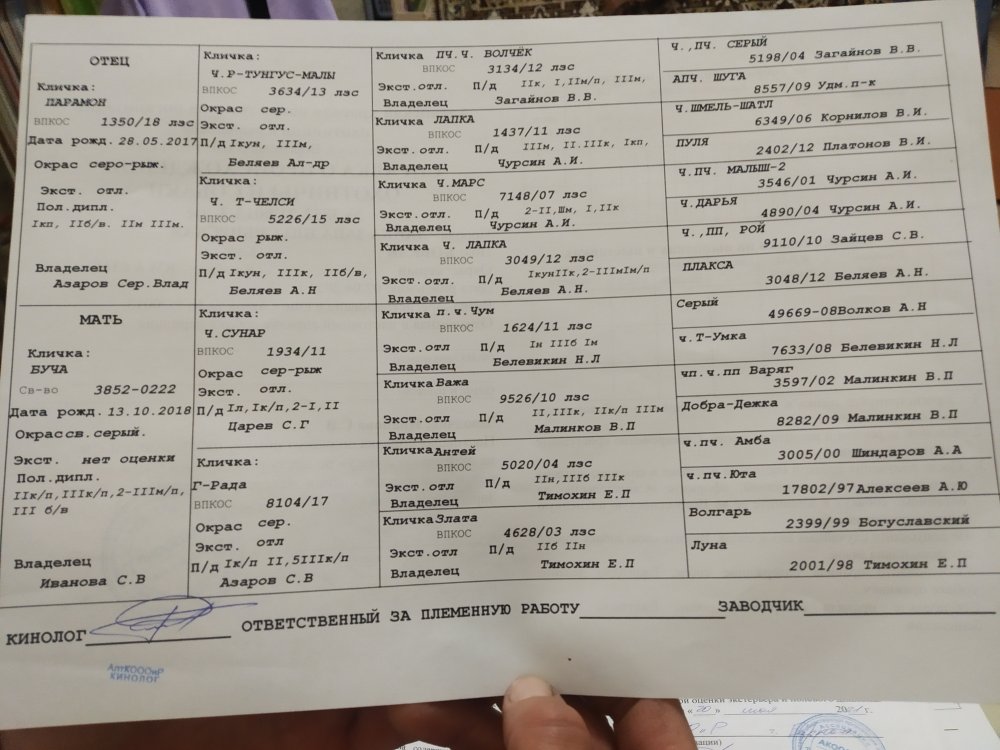 ОТЕЦ
Кличка:
ПАРАМОН
ВПКОС 1350/18 лэс
Дата рожд. 28.05.2017
Окрас серо-рыж.
Экст. отл.
Пол.дипл.
Iкп, IIб/в. IIм IIIм.
Владелец
Азаров Сер.Влад
МАТЬ
Кличка:
БУЧА
Св-во 3852-0222
Дата рожд. 13.10.2018
Окрас св.серый.
Экст. нет оценки
Пол.дипл.
IIк/п,IIIк/п,2-IIIм/п,
III б/в
Владелец
Иванова С.В
Кличка:
Ч.Р-ТУНГУС-МАЛЫ
ВПКОС 3634/13 лэс
Окрас сер.
Экст. отл.
П/д Iкун, IIIм,
Беляев Ал-др
Кличка:
Ч. Т-ЧЕЛСИ
ВПКОС 5226/15 лэс
Окрас рыж.
Экст. отл.
П/д Iкун, IIIк, IIб/в,
Беляев А.Н
Кличка:
Ч.СУНАР
ВПКОС 1934/11
Окрас сер-рыж
Экст. отл.
П/д Iл,Iк/п,2-I,II
Царев С.Г
Кличка:
Г-Рада
ВПКОС 8104/17
Окрас сер.
Экст. отл
П/д Iк/п II,5IIIк/п
Азаров С.В
Кличка ПЧ.Ч. ВОЛЧЁК
ВПКОС 3134/12 лэс
Экст.отл. П/д IIк, I,IIм/п, IIIм,
Владелец Загайнов В.В.
Кличка ЛАПКА
ВПКОС 1437/11 лэс
Экст.отл. П/д IIIм, II.IIIк, Iкп,
Владелец Чурсин А.И.
Кличка Ч.МАРС
ВПКОС 7148/07 лэс
Экст.отл. П/д 2-II,Шм, I,IIк
Владелец Чурсин А.И.
Кличка Ч. ЛАПКА
ВПКОС 3049/12 лэс
Экст.отл. П/д IкунIIк,2-IIIмIм/п
Владелец Беляев А.Н.
Кличка п.ч.Чум
ВПКОС 1624/11 лэс
Экст.отл П/д Iн IIIб Iм
Владелец Белевикин Н.Л
Кличка Важа
ВПКОС 9526/10 лэс
Экст.отл П/д II,IIIк, IIк/п IIIм
Владелец Малинков В.П
Кличка Антей
ВПКОС 5020/04 лэс
Экст.отл П/д IIн,IIIб IIIк
Владелец Тимохин Е.П
Кличка Злата
ВПКОС 4628/03 лэс
Экст.отл П/д IIб IIн
Владелец Тимохин Е.П
Ч.,ПЧ. СЕРЫЙ
5198/04 Загайнов В.В.
АПЧ. ШУГА
8557/09 Удм.п-к
Ч.ШМЕЛЬ-ШАТЛ
6349/06 Корнилов В.И.
ПУЛЯ
2402/12 Платонов В.И.
Ч.ПЧ. МАЛЫШ-2
3546/01 Чурсин А.И.
Ч.ДАРЬЯ
4890/04 Чурсин А.И.
Ч.,ПП, РОЙ
9110/10 Зайцев С.В.
ПЛАКСА
3048/12 Беляев А.Н.
Серый
49669-08Волков А.Н
ч.Т-Умка
7633/08 Белевикин Н.Л
чп.ч.пп Варяг
3597/02 Малинкин В.П
Добра-Дежка
8282/09 Малинкин В.П
ч.пч. Амба
3005/00 Шиндаров А.А
ч.пч.Юта
17802/97Алексеев А.Ю
Волгарь
2399/99 Богуславский
Луна
2001/98 Тимохин Е.П
КИНОЛОГ ОТВЕТСТВЕННЫЙ ЗА ПЛЕМЕННУЮ РАБОТУ ЗАВОДЧИК
АлтКОООиР
КИНОЛОГ